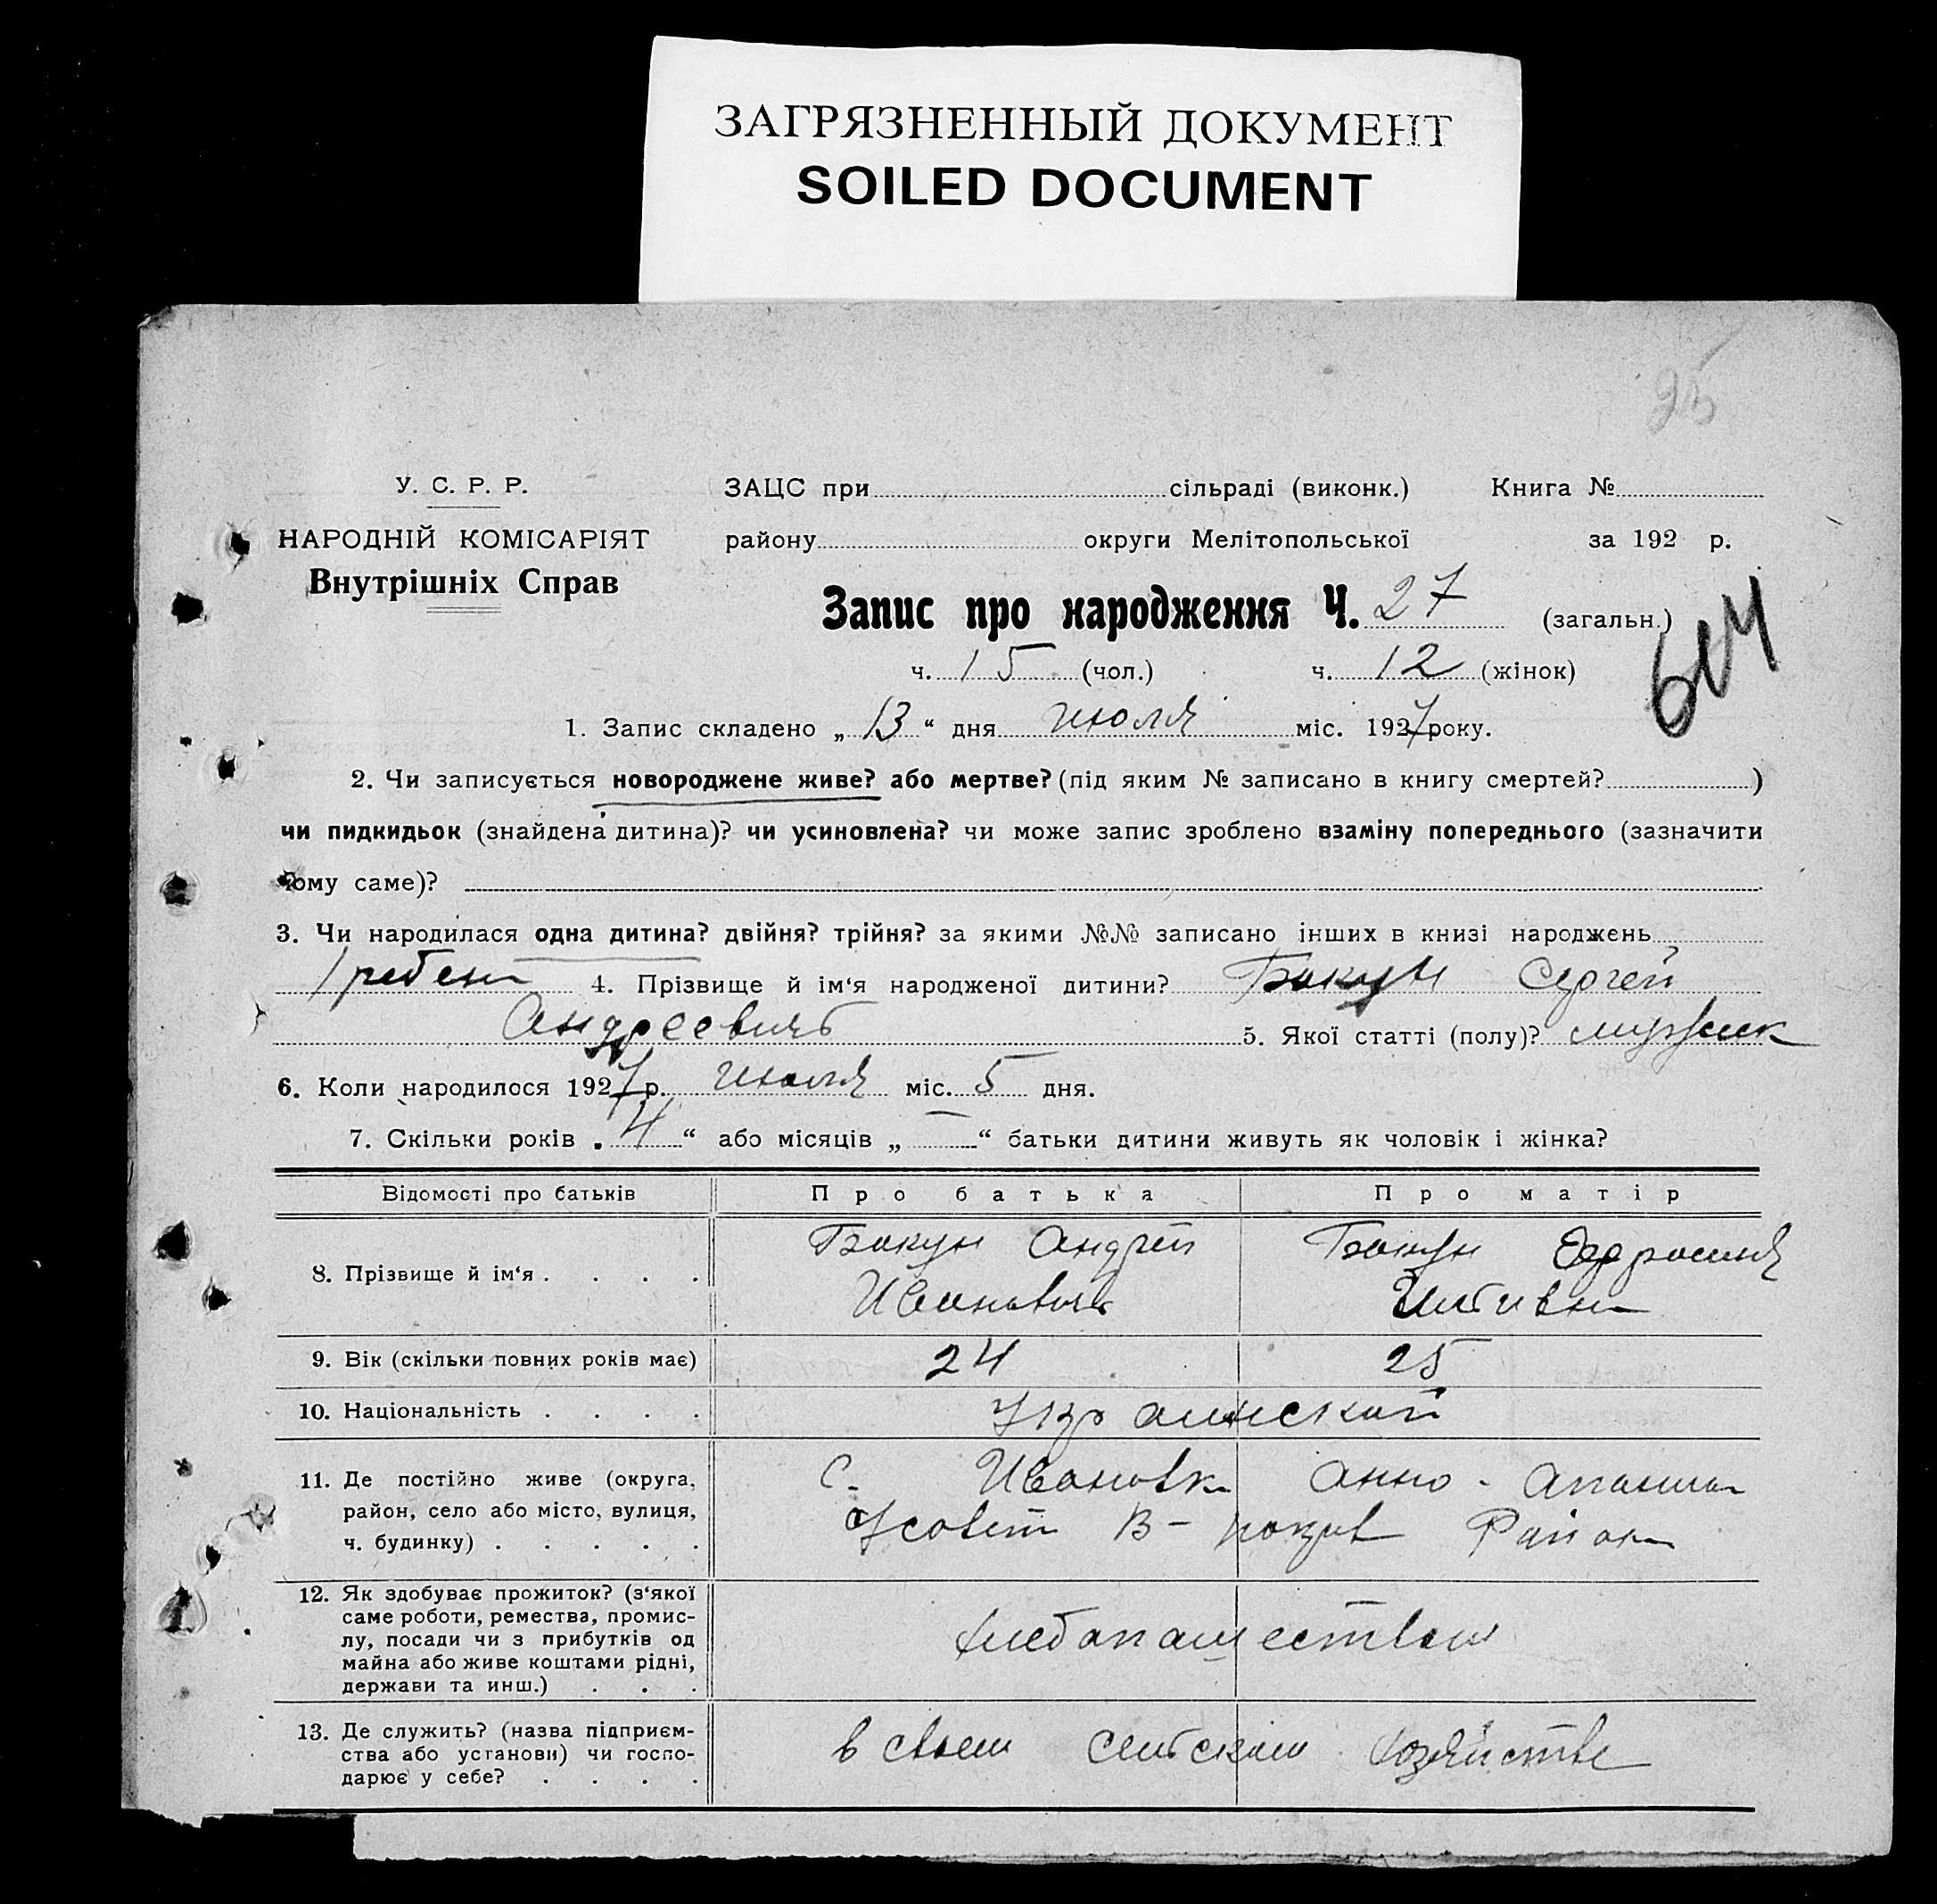 ЗАГРЯЗНЕННЫЙ ДОКУМЕНТ
SOILED DOCUMENT
95
У. С. Р. Р.
НАРОДНІЙ КОМІСАРІЯТ
Внутрішніх Справ
ЗАЦС при сільраді (виконк.) Книга №
району округи Мелітопольської за 192 р.
Запис про народження Ч. 27 (загальн.)
ч. 15 (чол.) ч. 12 (жінок)
1. Запис складено „ 13 “ дня июля міс. 1927 року.
2. Чи записується новороджене живе? або мертве? (під яким № записано в книгу смертей? )
чи пидкидьок (знайдена дитина)? чи усиновлена? чи може запис зроблено взаміну попереднього (зазначити
чому саме)?
3. Чи народилася одна дитина? двійня? трійня? за якими №№ записано інших в книзі народжень
1 ребен 4. Прізвище й ім‘я народженої дитини? Бакун Сергей
Андреевичь 5. Якої статті (полу)? мужск
6. Коли народилося 1927 р. июля міс. 5 дня.
7. Скільки років „ 4 “ або місяців „ — “ батьки дитини живуть як чоловік і жінка?
Відомості про батьків Про батька Про матір
8. Прізвище й ім‘я . . . . Бакун Андрей Бакун
Иванович
9. Вік (скільки повних років має) 24 25
10. Національність . . . . Украинской
11. Де постійно живе (округа, с. Ивановк Анно-
район, село або місто, вулиця, В-
ч. будинку) . . . . .
12. Як здобуває прожиток? (з‘якої
саме роботи, ремества, промис-
лу, посади чи з прибутків од хлебопашеством
майна або живе коштами рідні,
держави та инш.) . . .
13. Де служить? (назва підприєм- в своем сельском хозяйстве
ства або установи) чи госпо-
дарює у себе? . . . .